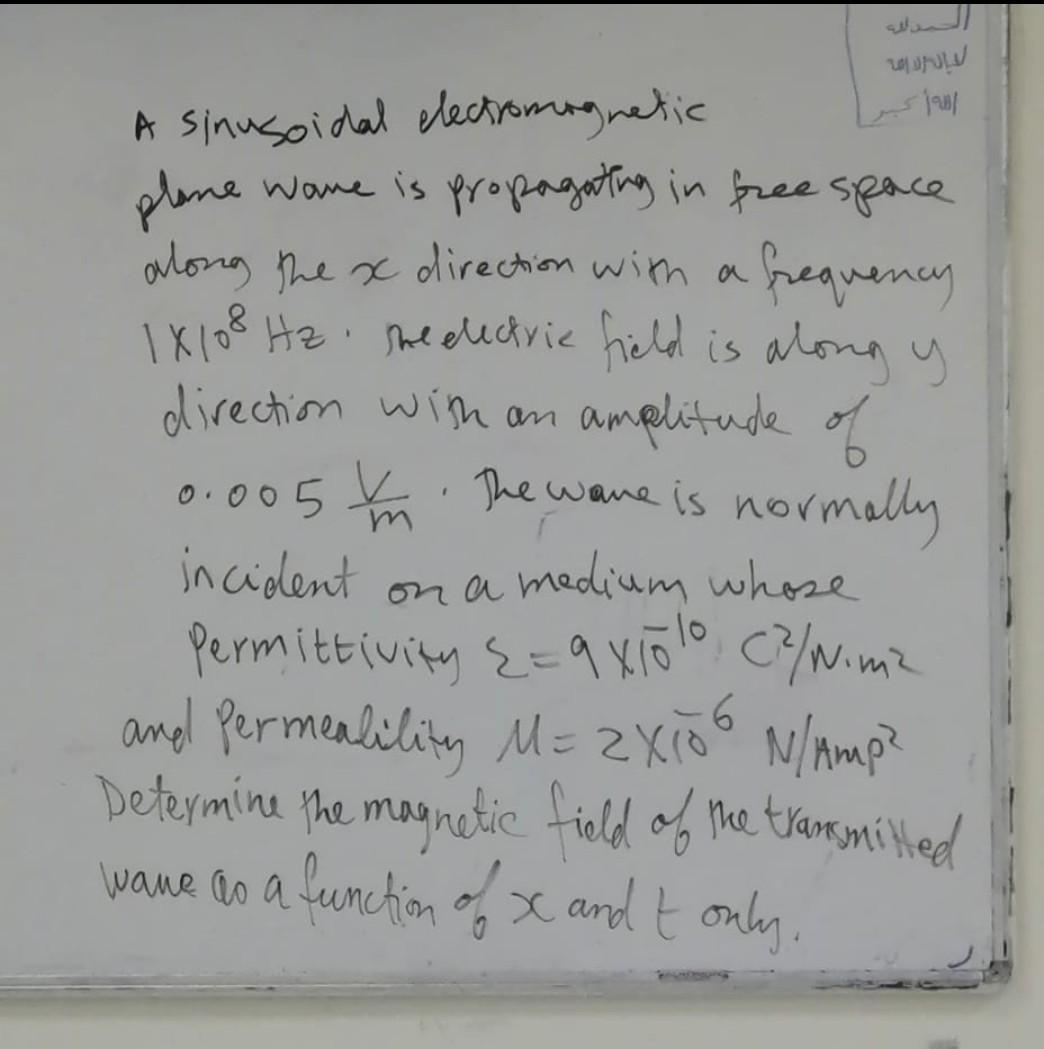 الحمدلله
A sinusoidal electromagnetic
plane wave is propagating in free space
along the x direction with a frequency
1X10⁸ Hz. The electric field is along y
direction with an amplitude of
0.005 V/m. The wave is normally
incident on a medium whose
Permittivity ε=9X10⁻¹⁰ C²/N.m²
and Permealility M=2X10⁻⁶ N/Amp²
Determine the magnetic field of the transmitted
wave as a function of x and t only.